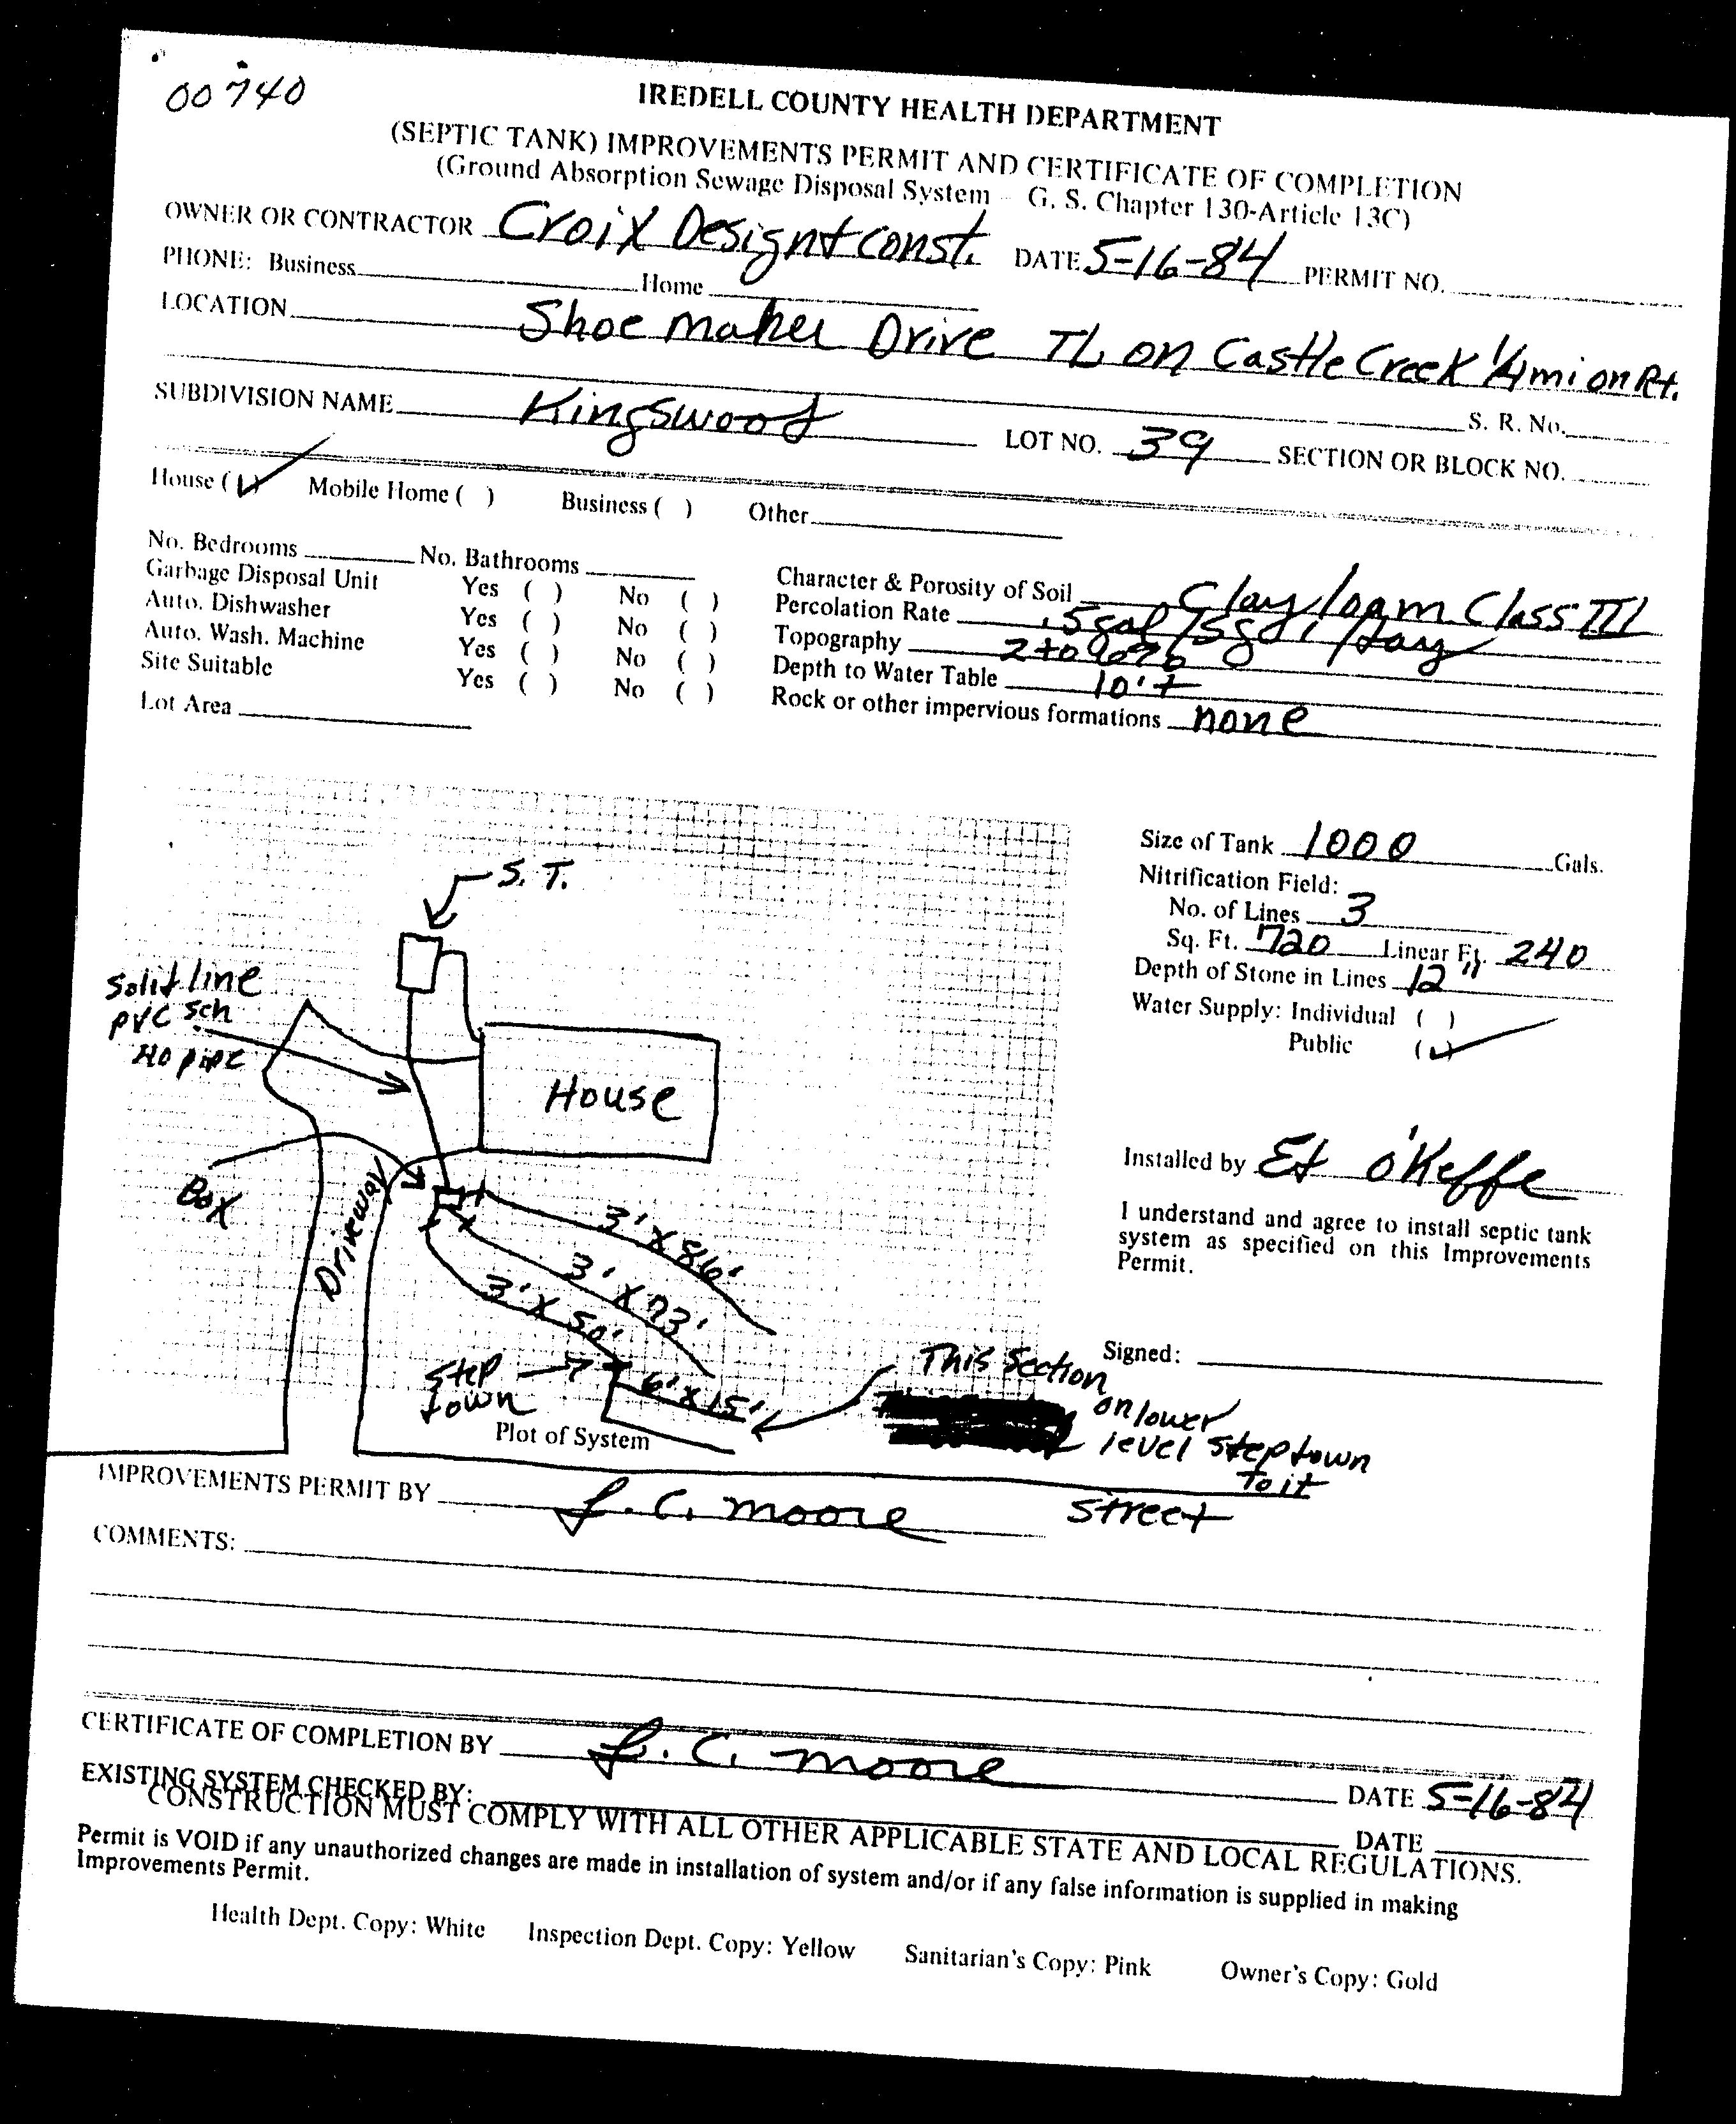 00740
IREDELL COUNTY HEALTH DEPARTMENT
(SEPTIC TANK) IMPROVEMENTS PERMIT AND CERTIFICATE OF COMPLETION
(Ground Absorption Sewage Disposal System – G. S. Chapter 130-Article 13C)
OWNER OR CONTRACTOR Croix Design + const. DATE 5-16-84 PERMIT NO.
PHONE: Business Home
LOCATION Shoe maker Drive TL on Castle Creek 1/4 mi on Rt.
S. R. No.
SUBDIVISION NAME Kingswood LOT NO. 39 SECTION OR BLOCK NO.
House (✓) Mobile Home ( ) Business ( ) Other
No. Bedrooms No. Bathrooms
Garbage Disposal Unit Yes ( ) No ( )
Auto. Dishwasher Yes ( ) No ( )
Auto. Wash. Machine Yes ( ) No ( )
Site Suitable Yes ( ) No ( )
Lot Area
Character & Porosity of Soil Clay loam Class III
Percolation Rate .5 gal/sq. /day
Topography 2 to
Depth to Water Table 10'+
Rock or other impervious formations none
Size of Tank 1000 Gals.
Nitrification Field:
No. of Lines 3
Sq. Ft. 720 Linear Ft. 240
Depth of Stone in Lines 12"
Water Supply: Individual ( )
Public (✓)
S. T.
Solid line
PVC Sch
40 pipe
House
Box
Driveway
3' X 86'
3' X 73'
3' X 50'
Step
down
6' X 15'
This Section
on lower
level step down
To it
Plot of System
Street
Installed by Ed O'Keffe
I understand and agree to install septic tank
system as specified on this Improvements
Permit.
Signed:
IMPROVEMENTS PERMIT BY J. C. Moore
COMMENTS:
CERTIFICATE OF COMPLETION BY J. C. Moore DATE 5-16-84
EXISTING SYSTEM CHECKED BY: DATE
CONSTRUCTION MUST COMPLY WITH ALL OTHER APPLICABLE STATE AND LOCAL REGULATIONS.
Permit is VOID if any unauthorized changes are made in installation of system and/or if any false information is supplied in making
Improvements Permit.
Health Dept. Copy: White Inspection Dept. Copy: Yellow Sanitarian's Copy: Pink Owner's Copy: Gold